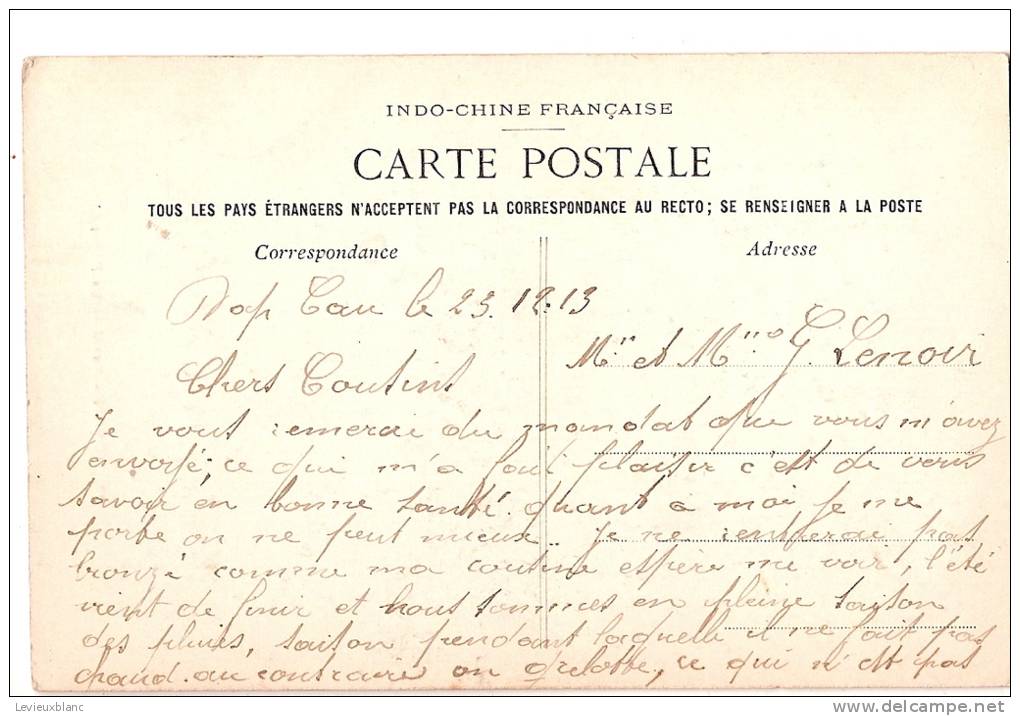 INDO-CHINE FRANÇAISE
CARTE POSTALE
TOUS LES PAYS ÉTRANGERS N'ACCEPTENT PAS LA CORRESPONDANCE AU RECTO; SE RENSEIGNER A LA POSTE
Correspondance
Adresse
Dap Cau le 23.12.13
Mr et Mme G. Lenoir
Chers Cousins
Je vous remerai du mandat que vous m'avez
envoyé; ce qui m'a fait plaisir c'est de vous
savoir en bonne santé. quant a moi je me
porte on ne peut mieux. Je ne rentrerai pas
bronzé comme ma cousine espère me voir, l'été
vient de finir et nous sommes en pleine saison
des pluies, saison pendant laquelle il ne fait pas
chaud. au contraire on grelotte, ce qui n'est pas
Levieuxblanc
delcampe.net